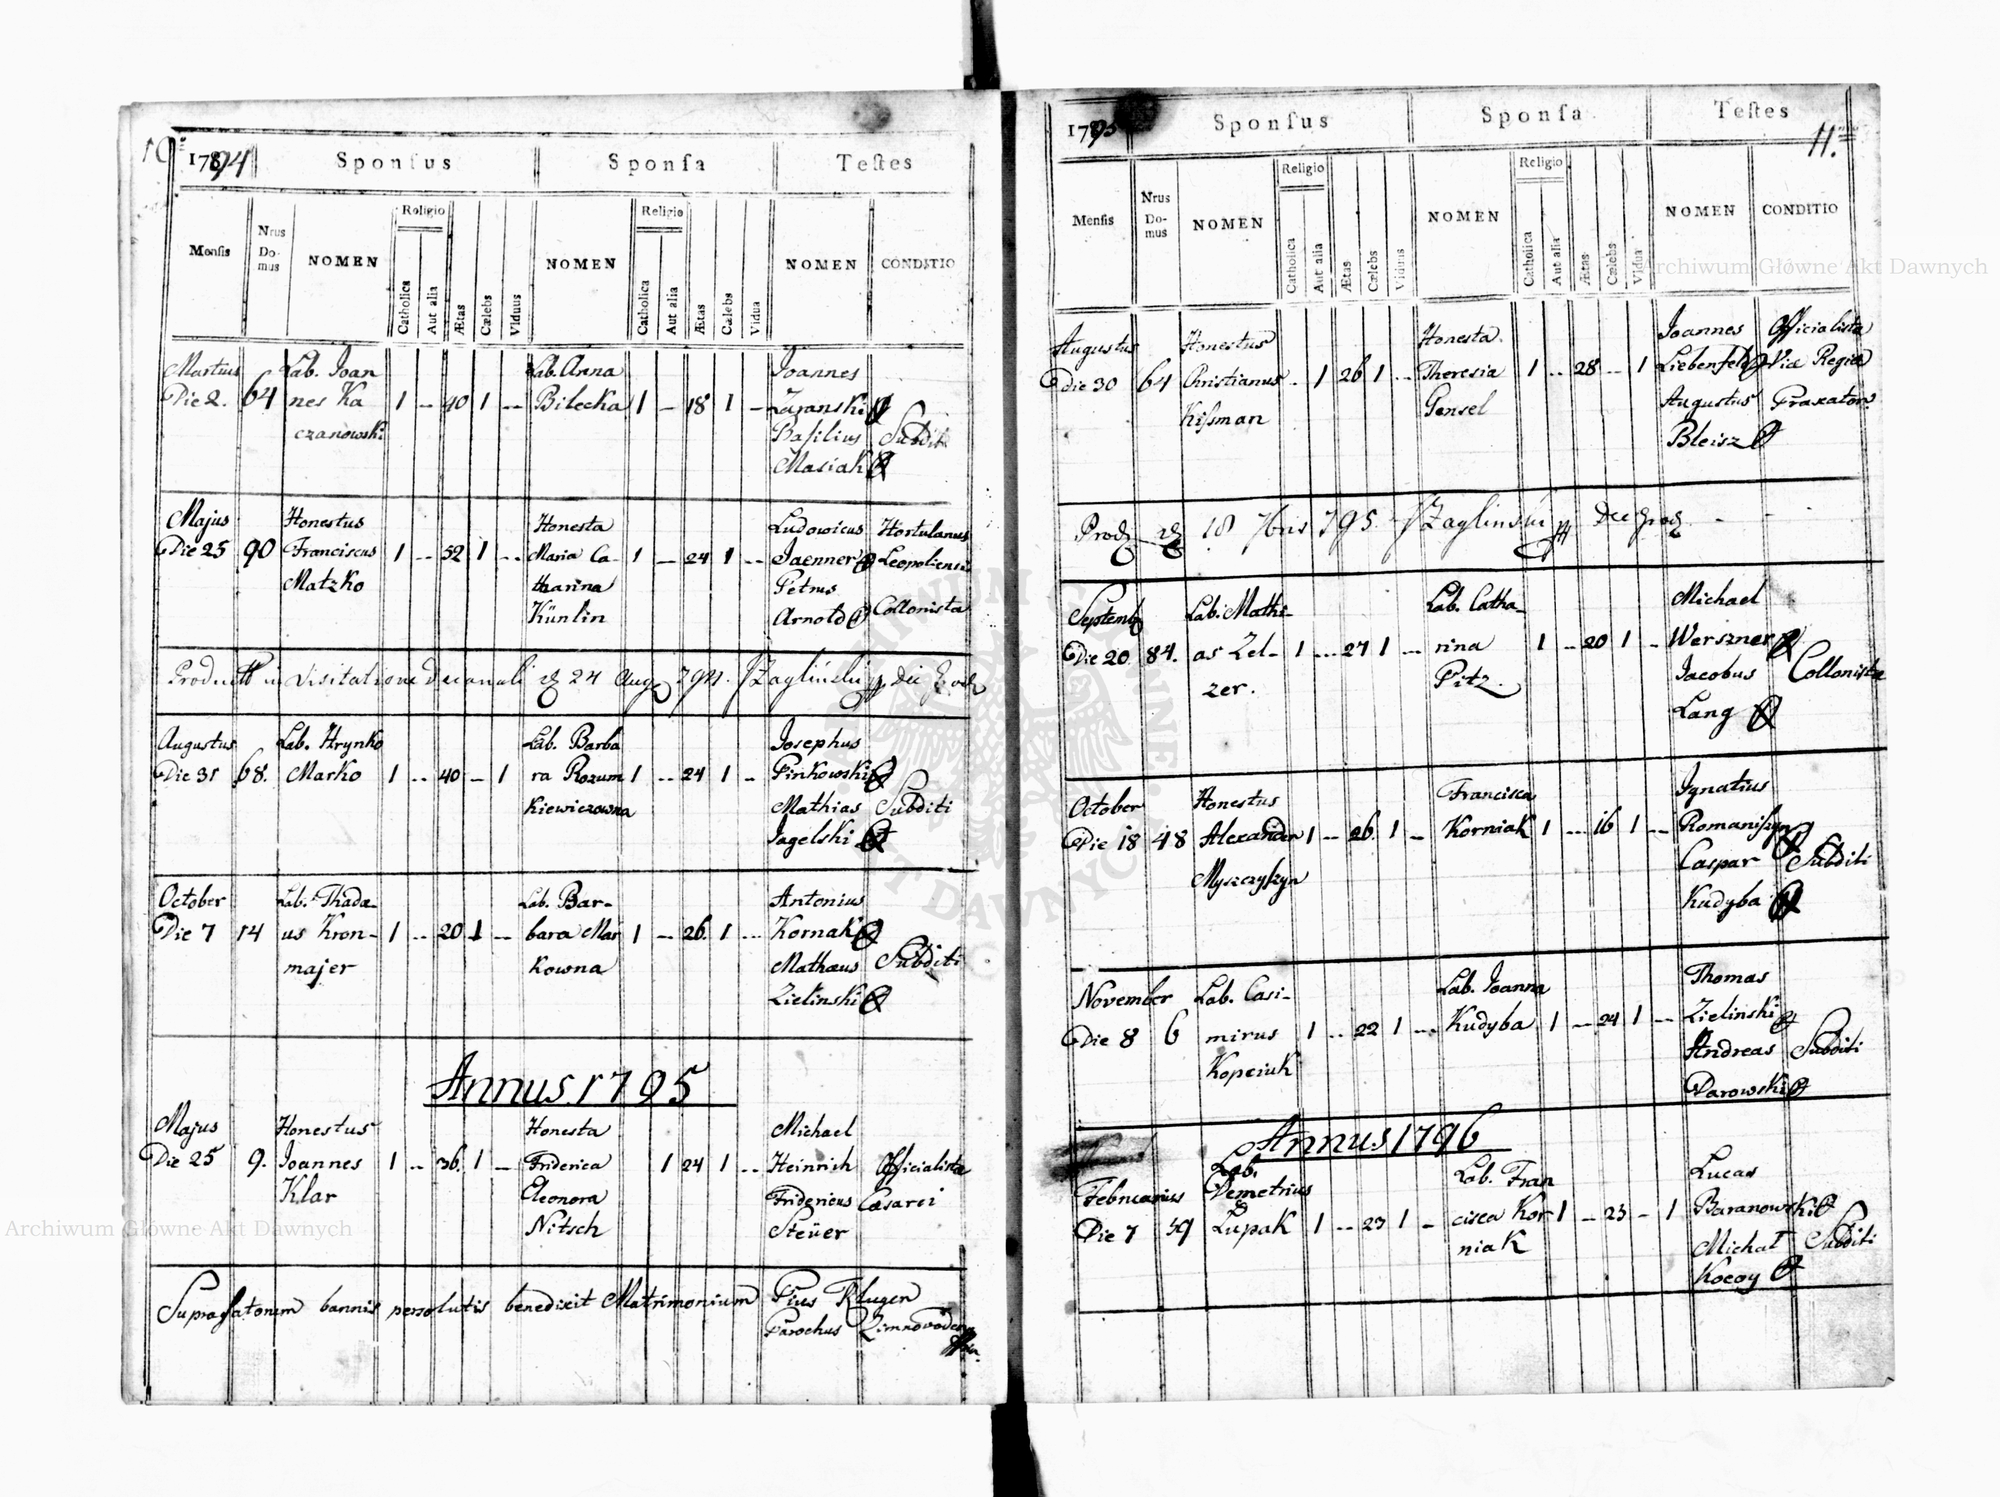 10
1794
Sponsus Sponsa Testes
Mensis Nrus Domus NOMEN Religio Catholica Aut alia Ætas Cælebs Viduus NOMEN Religio Catholica Aut alia Ætas Cælebs Vidua NOMEN CONDITIO
Martius Lab. Joan Lab. Anna Joannes
Die 2. 64 nes Ka 1 -- 40 1 -- Bilecka 1 -- 18 1 -- Zajanski
czanowski Basilius Subditi
Masiak
Majus Honestus Honesta Ludowicus Hortulanus
Die 25 90 Franciscus 1 -- 52 1 -- Maria Ca- 1 -- 24 1 -- Jaenner Leopoliensis
Matzko tharina Petrus
Künlin Arnold Collonista
in visitatione Decanali 24 Aug 794.
Augustus Lab. Hrynko Lab. Barba Josephus
Die 31 68. Marko 1 -- 40 -- 1 ra Rozum 1 -- 24 1 - Pinkowski
kiewiczowna Mathias Subditi
Jagelski
October Lab. Thada- Lab. Bar- Antonius
Die 7 14 us Kron- 1 -- 20 1 -- bara Mar 1 -- 26 1 -- Kornak
majer kowna Mathæus Subditi
Zielinski
Annus 1795
Majus Honestus Honesta Michael
Die 25 9. Joannes 1 -- 36 1 -- Friderica 1 24 1 -- Heinrich Officialista
Klar Eleonora Fridericus Cæsarei
Nitsch Steüer
bannis persolutis benedixit Matrimonium Pius Klugen
Parochus
11.
1795
Sponsus Sponsa Testes
Mensis Nrus Domus NOMEN Religio Catholica Aut alia Ætas Cælebs Viduus NOMEN Religio Catholica Aut alia Ætas Cælebs Vidua NOMEN CONDITIO
Augustus Honestus Honesta Joannes Officialista
Die 30 64 Christianus - 1 26 1 -- Theresia 1 -- 28 -- 1 Liebenfeld Via Regia
Kissman Gensel Augustus
Bleisz
18 7bris 795
Septemb Lab. Mathi- Lab. Catha- Michael
Die 20 84. as Zel- 1 -- 27 1 -- rina 1 -- 20 1 - Werszner
zer. Pitz. Jacobus Collonista
Lang
October Honestus Francisca Ignatius
Die 18 48 Alexander 1 -- 26. 1 -- Korniak 1 -- 16 1 -- Romaniszyn
Myszczyszyn Caspar Subditi
Kudyba
November Lab. Casi- Lab. Joanna Thomas
Die 8 6 mirus 1 -- 22 1 -- Kudyba 1 -- 24 1 -- Zielinski
Kopciuk Andreas Subditi
Darowski
Annus 1796
Lab. Lab. Fran Lucas
Februarius Demetrius cisca Kor 1 -- 23 - 1 Baranowski
Die 7 59 Lupak 1 -- 23 1 - niak Michał Subditi
Kocoy
Archiwum Główne Akt Dawnych
Archiwum Główne Akt Dawnych
ARCHIWUM GŁÓWNE AKT DAWNYCH